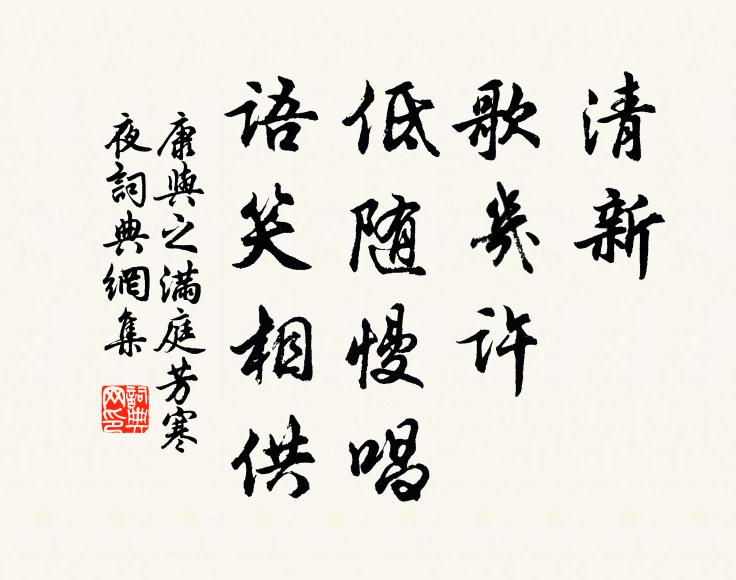 清新
歌幾許
低随慢唱
语笑相供
康與之滿庭芳寒
夜詞典網集
詞典網印